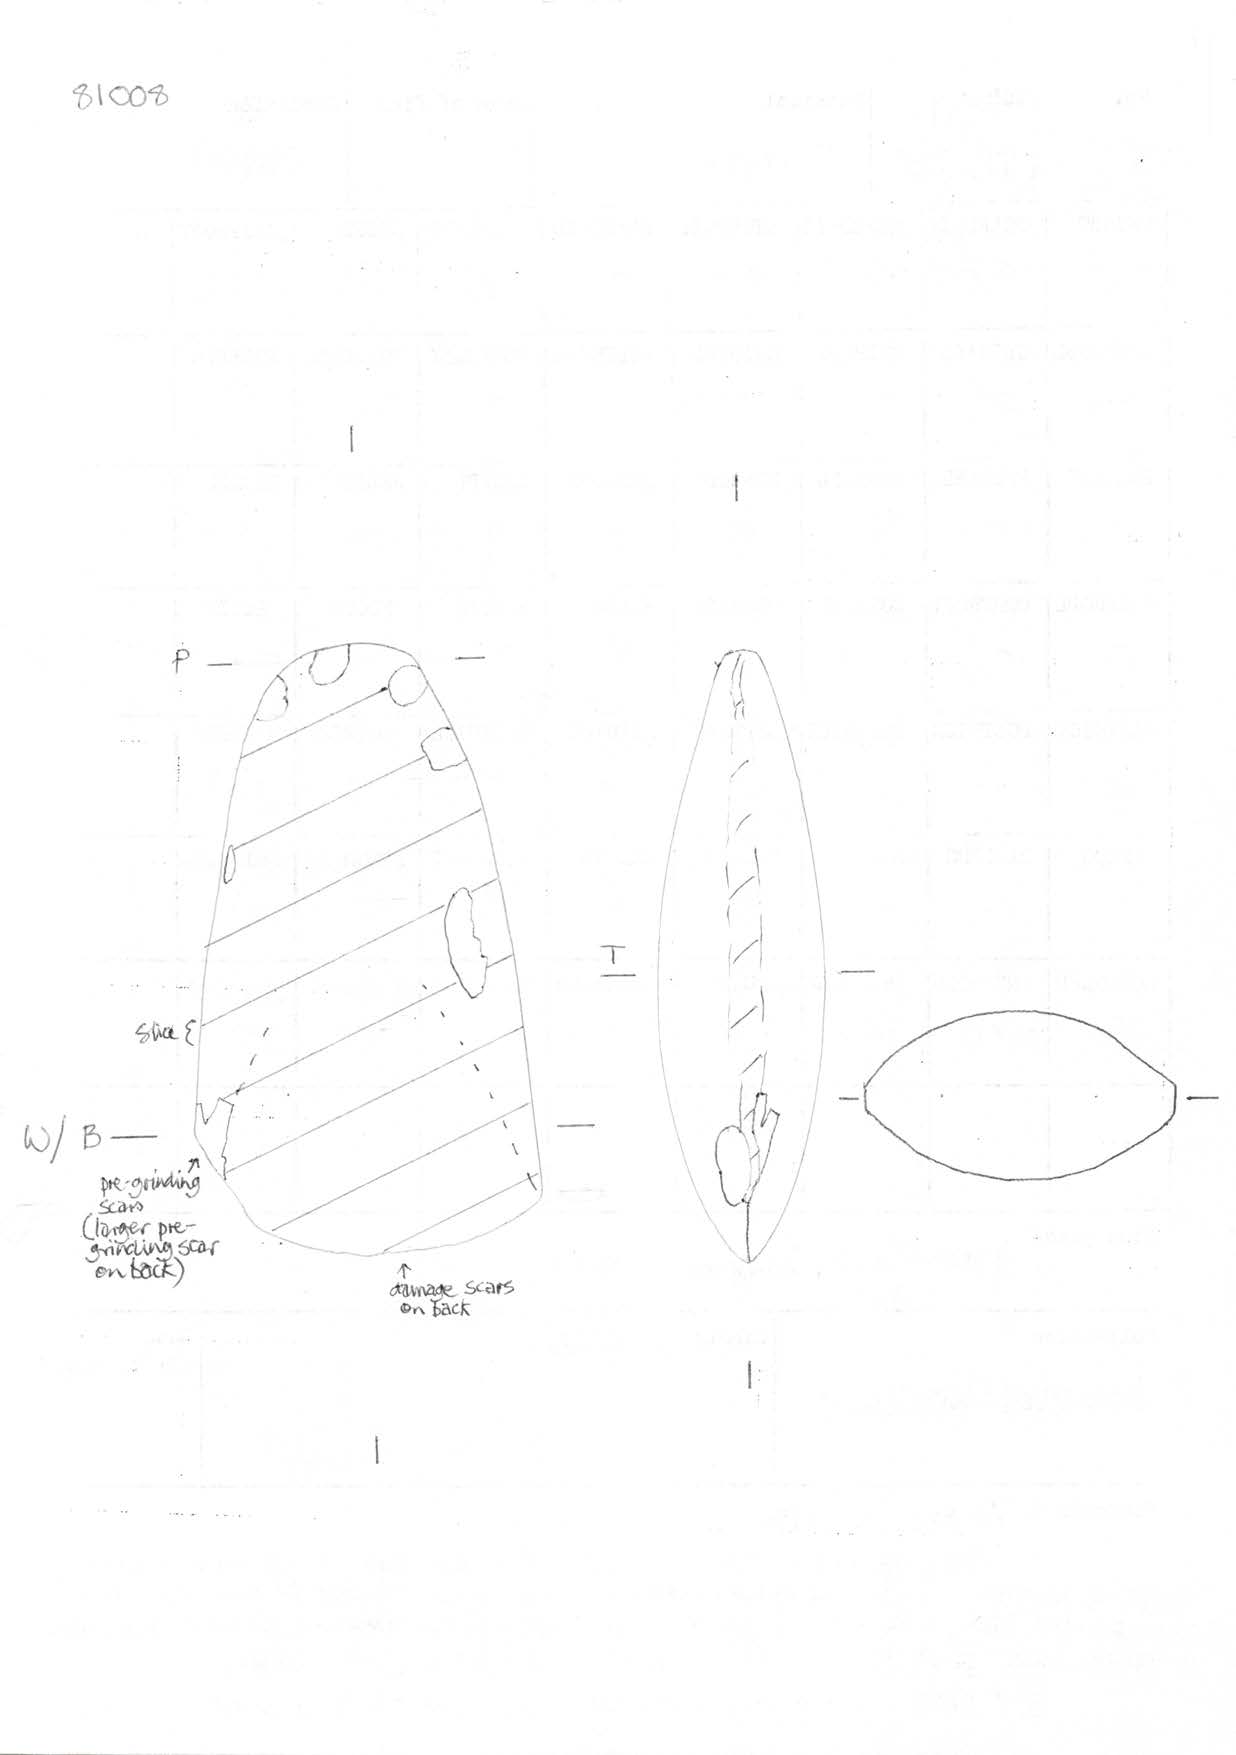 81008
P
T
Slice {
W/ B
pre-grinding
scars
(larger pre-
grinding scar
on back)
damage scars
on back